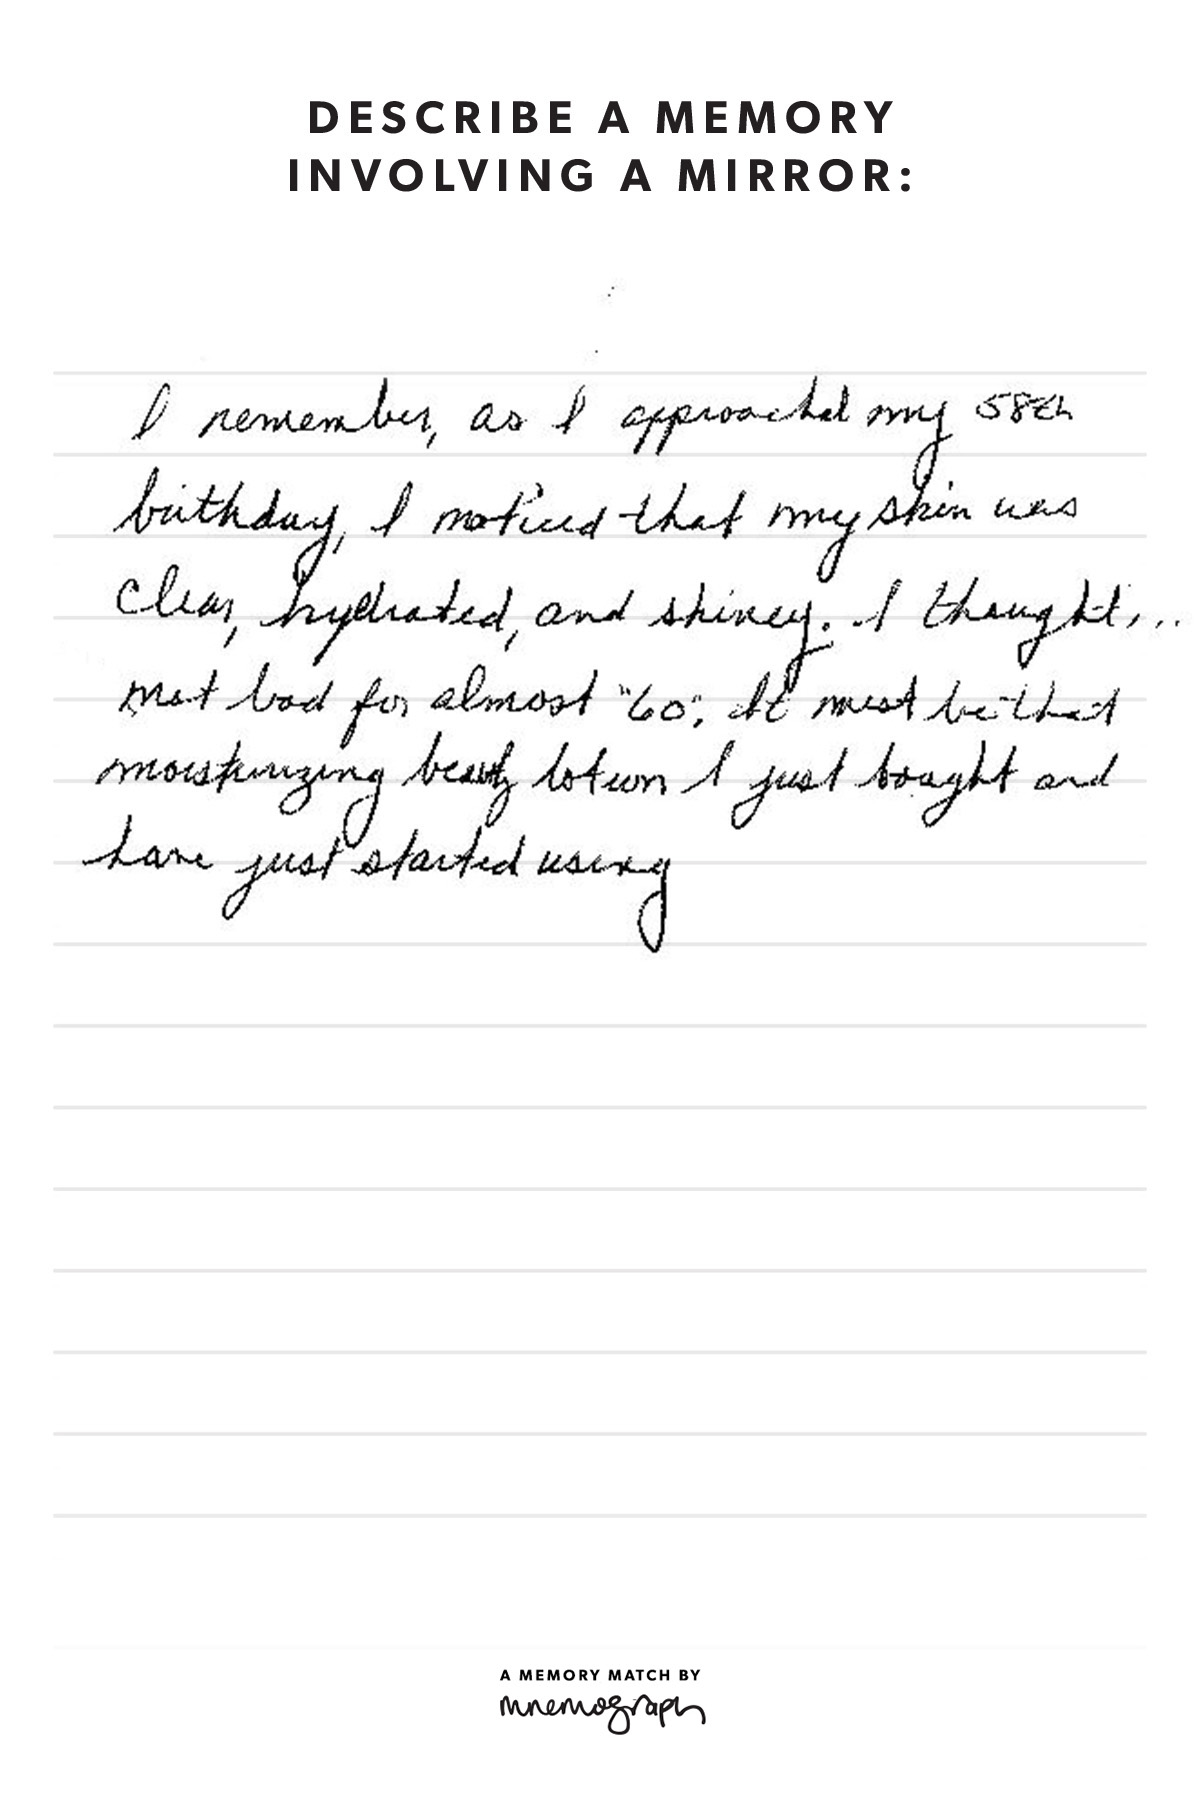 DESCRIBE A MEMORY
INVOLVING A MIRROR:
I remember, as I approached my 58th
birthday, I noticed that my skin was
clear, hydrated, and shiney. I thought...
not bad for almost "60". It must be that
moisturizing beauty lotion I just bought and
have just started using
A MEMORY MATCH BY
mnemograph